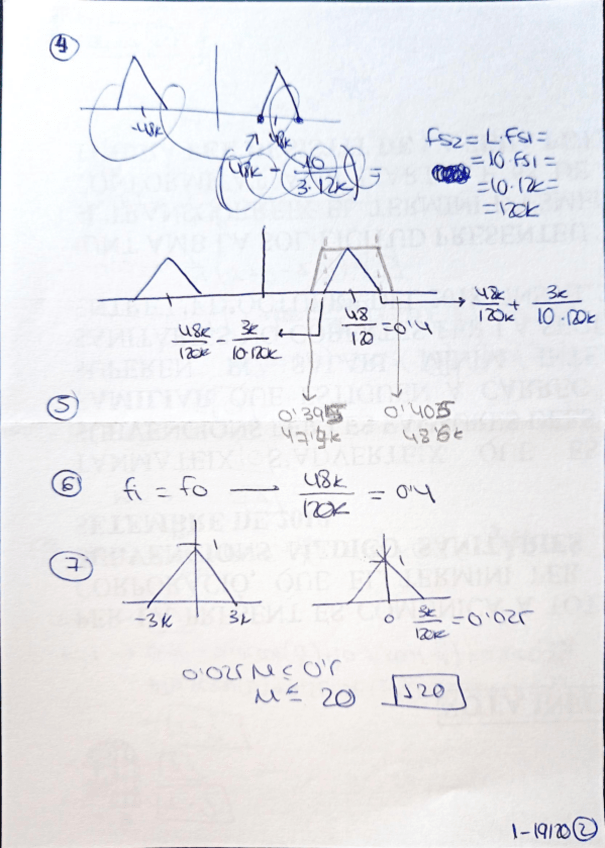 4
-48k
48k
48k - 10/3·12k =
Fs2 = L·Fs1 =
= 10·Fs1 =
= 10·12k =
= 120k
48k/120k - 3k/10·120k
48/120 = 0'4
48k/120k + 3k/10·120k
5
0'395
0'405
6
f1 = f0 → 48k/120k = 0'4
7
1
1
-3k
3k
0
3k/120k = 0'025
0'025 M ≤ 0'5
M ≤ 20
120
1-19/20 2